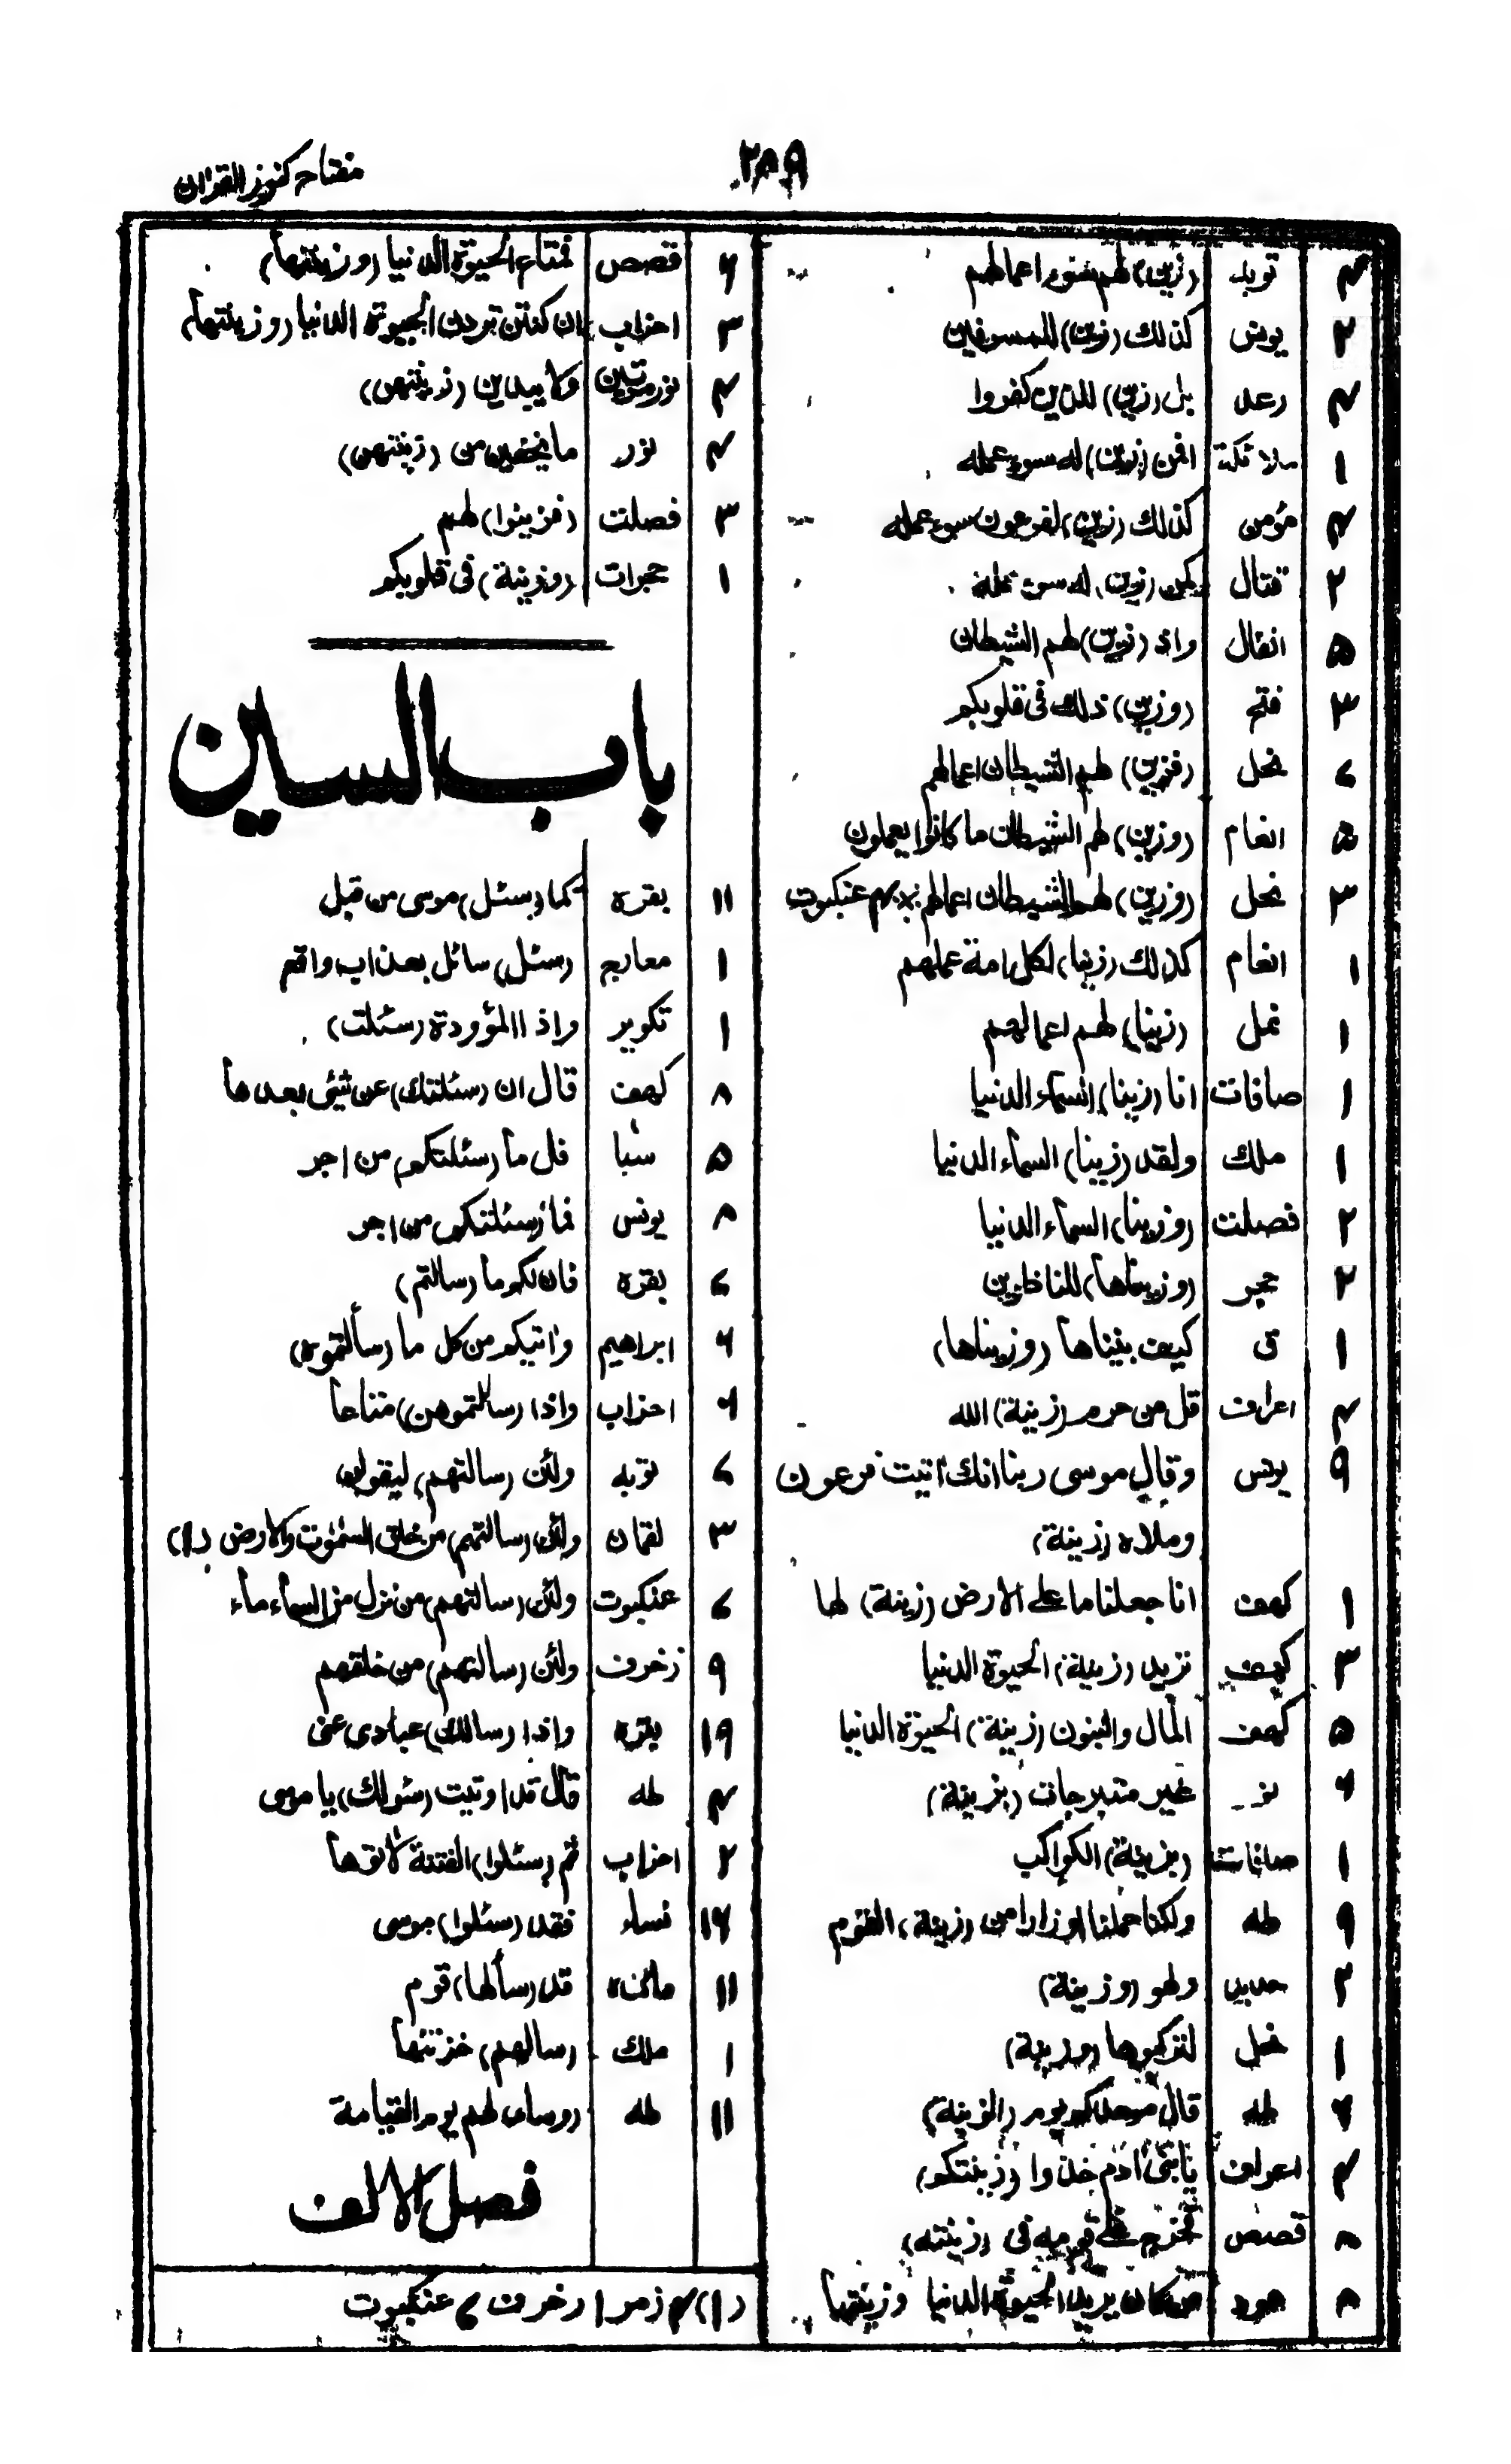 مفتاح کنوز القرآن
۲۸۹
۴ توبه (زین) لهم سوء اعمالهم
۲ یونس کذلك (زین) للمسرفین
۴ رعد بل (زین) للذین کفروا
۱ ملائکة افمن (زین) له سوء عمله
۴ مؤمن کذلك (زین) لفرعون سوء عمله
۲ قتال کمن (زین) له سوء عمله
۵ انفال واذ (زین) لهم الشیطان
۳ فتح (وزین) ذلك فی قلوبکم
۷ نحل (فزین) لهم الشیطان اعمالهم
۵ انعام (وزین) لهم الشیطان ما کانوا یعملون
۳ نحل (وزین) لهم الشیطان اعمالهم عنکبوت
۱ انعام کذلك (زینا) لکل امة عملهم
۱ نمل (زینا) لهم اعمالهم
۱ صافات انا (زینا) السماء الدنیا
۱ ملك ولقد (زینا) السماء الدنیا
۲ فصلت (وزینا) السماء الدنیا
۲ حجر (وزیناها) للناظرین
۱ ق کیف بنیناها (وزیناها)
۴ اعراف قل من حرم (زینة) الله
۹ یونس وقال موسی ربنا انك اتیت فرعون
وملاه (زینة)
۱ کهف انا جعلنا ما علی الارض (زینة) لها
۳ کهف ترید (زینة) الحیوة الدنیا
۵ کهف المال والبنون (زینة) الحیوة الدنیا
۶ نور غیر متبرجات (بزینة)
۱ صافات (بزینة) الکواکب
۹ طه ولکنا حملنا اوزارا من (زینة) القوم
۲ حدید ولهو (وزینة)
۱ نحل لترکبوها (وزینة)
۶ طه قال موعدکم یوم (الزینة)
۴ اعراف یابنی ادم خذوا (زینتکم)
۸ قصص فخرج علی قومه فی (زینته)
۸ هود من کان یرید الحیوة الدنیا وزینتها
۶ قصص فمتاع الحیوة الدنیا (وزینتها)
۳ احزاب ان کنتن تردن الحیوة الدنیا (وزینتها)
۴ نور مرتین ولا یبدین (زینتهن)
۴ نور ما یخفین من (زینتهن)
۳ فصلت (فزینوا) لهم
۱ حجرات (وزینه) فی قلوبکم
باب السین
۱۱ بقره کما (سئل) موسی من قبل
۱ معارج (سئل) سائل بعذاب واقع
۱ تکویر واذا المؤودة (سئلت)
۸ کهف قال ان (سئلتك) عن شئی بعدها
۵ سبا قل ما (سئلتکم) من اجر
۸ یونس فما (سئلتکم) من اجر
۷ بقره فان لکم ما (سالتم)
۶ ابراهیم واتیکم من کل ما (سألتموه)
۶ احزاب واذا (سالتموهن) متاعا
۷ توبه ولئن (سالتهم) لیقولن
۳ لقمان ولئن (سالتهم) من خلق السموت والارض (۱)
۶ عنکبوت ولئن (سالتهم) من نزل من السماء ماء
۹ زخرف ولئن (سالتهم) من خلقهم
۱۹ بقره واذا (سالك) عبادی عنی
۴ طه قال قد اوتیت (سئولك) یا موسی
۲ احزاب ثم (سئلوا) الفتنة لاتوها
۱۶ نساء فقد (سئلوا) موسی
۱۱ مائده قد (سألها) قوم
۱ ملك (سالهم) خزنتها
۱۱ طه (وساء) لهم یوم القیامة
فصل الالف
(۱) ۴ زمر ۱ زخرف ۷ عنکبوت